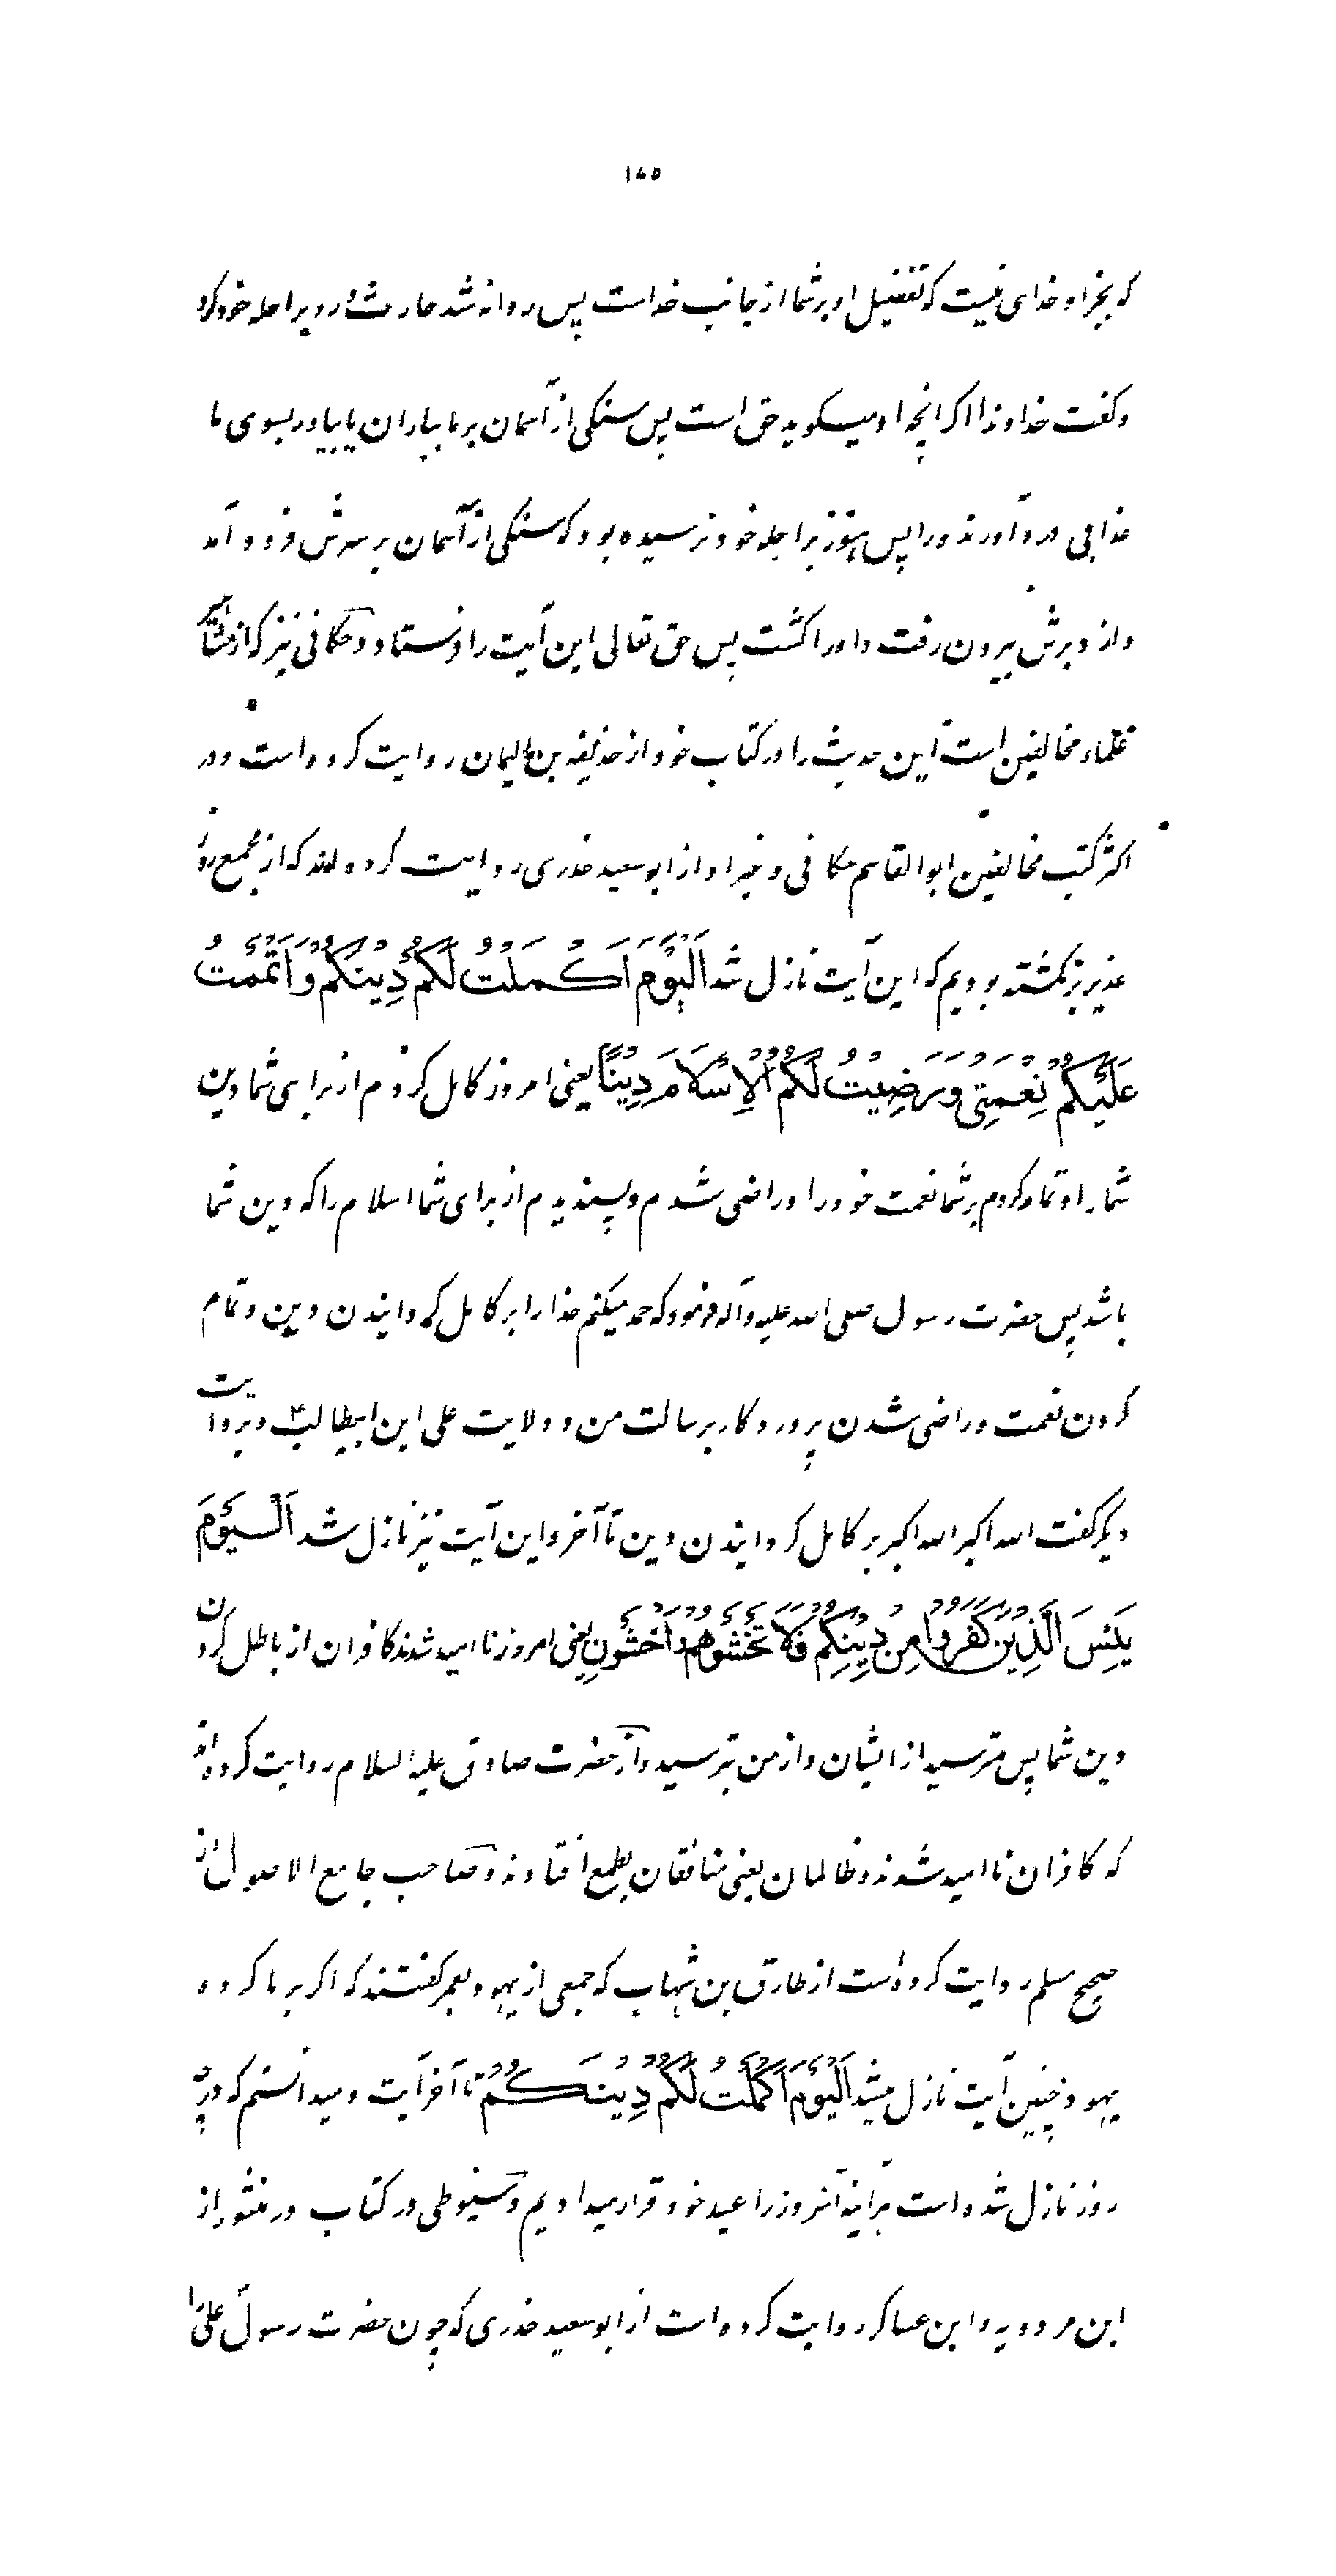 ۱۴۵
که بجز او خدای نیست که تفضیل او بر شما از جانب خداست پس روانه شد حارث و رو براحله خود کرد
و کفت خداوندا اکر انچه او میکوید حق است پس سنکی از آسمان بر ما بباران یا بیاور بسوی ما
عذابی دردآورنده را پس هنوز براحله خود نرسیده بود که سنکی از آسمان بر سرش فرود آمد
و از دبرش بیرون رفت و او را کشت پس حق تعالی این آیت را فرستاد و حسکانی نیز که از مشاهیر
علماء مخالفین است این حدیث را در کتاب خود از حذیفه بن الیمان روایت کرده است و در
اکثر کتب مخالفین ابو القاسم حسکانی و غیر او از ابو سعید خدری روایت کرده‌اند که از مجمع روز
غدیر برنکشته بودیم که این آیت نازل شد اَلْیَوْمَ اَکْمَلْتُ لَکُمْ دِیْنَکُمْ وَ اَتْمَمْتُ
عَلَیْکُمْ نِعْمَتِی وَ رَضِیْتُ لَکُمُ الْاِسْلَامَ دِیْنًا یعنی امروز کامل کردم از برای شما دین
شما را و تمام کردم بر شما نعمت خود را و راضی شدم و پسندیدم از برای شما اسلام را که دین شما
باشد پس حضرت رسول صلی الله علیه و آله فرمود که حمد میکنم خدا را بر کامل کردانیدن دین و تمام
کردن نعمت و راضی شدن پروردکار برسالت من و ولایت علی ابن ابیطالب و بروایت
دیکر کفت الله اکبر الله اکبر بر کامل کردانیدن دین تا آخر و این آیت نیز نازل شد اَلْیَوْمَ
یَئِسَ الَّذِیْنَ کَفَرُوْا مِنْ دِیْنِکُمْ فَلَا تَخْشَوْهُمْ وَاخْشَوْنِ یعنی امروز ناامید شدند کافران از باطل کردن
دین شما پس مترسید از ایشان و از من بترسید و از حضرت صادق علیه السلام روایت کرده‌اند
که کافران ناامید شدند و ظالمان یعنی منافقان بطمع افتادند و صاحب جامع الاصول از
صحیح مسلم روایت کرده است از طارق بن شهاب که جمعی از یهود بعمر کفتند که اکر بر ما کروه
یهود چنین آیت نازل میشد اَلْیَوْمَ اَکْمَلْتُ لَکُمْ دِیْنَکُمْ تا آخر آیت و میدانستم که در چه
روز نازل شده است هرآینه آنروز را عید خود قرار میدادیم و سیوطی در کتاب در منثور از
ابن مردویه و ابن عساکر روایت کرده است از ابو سعید خدری که چون حضرت رسول علی را